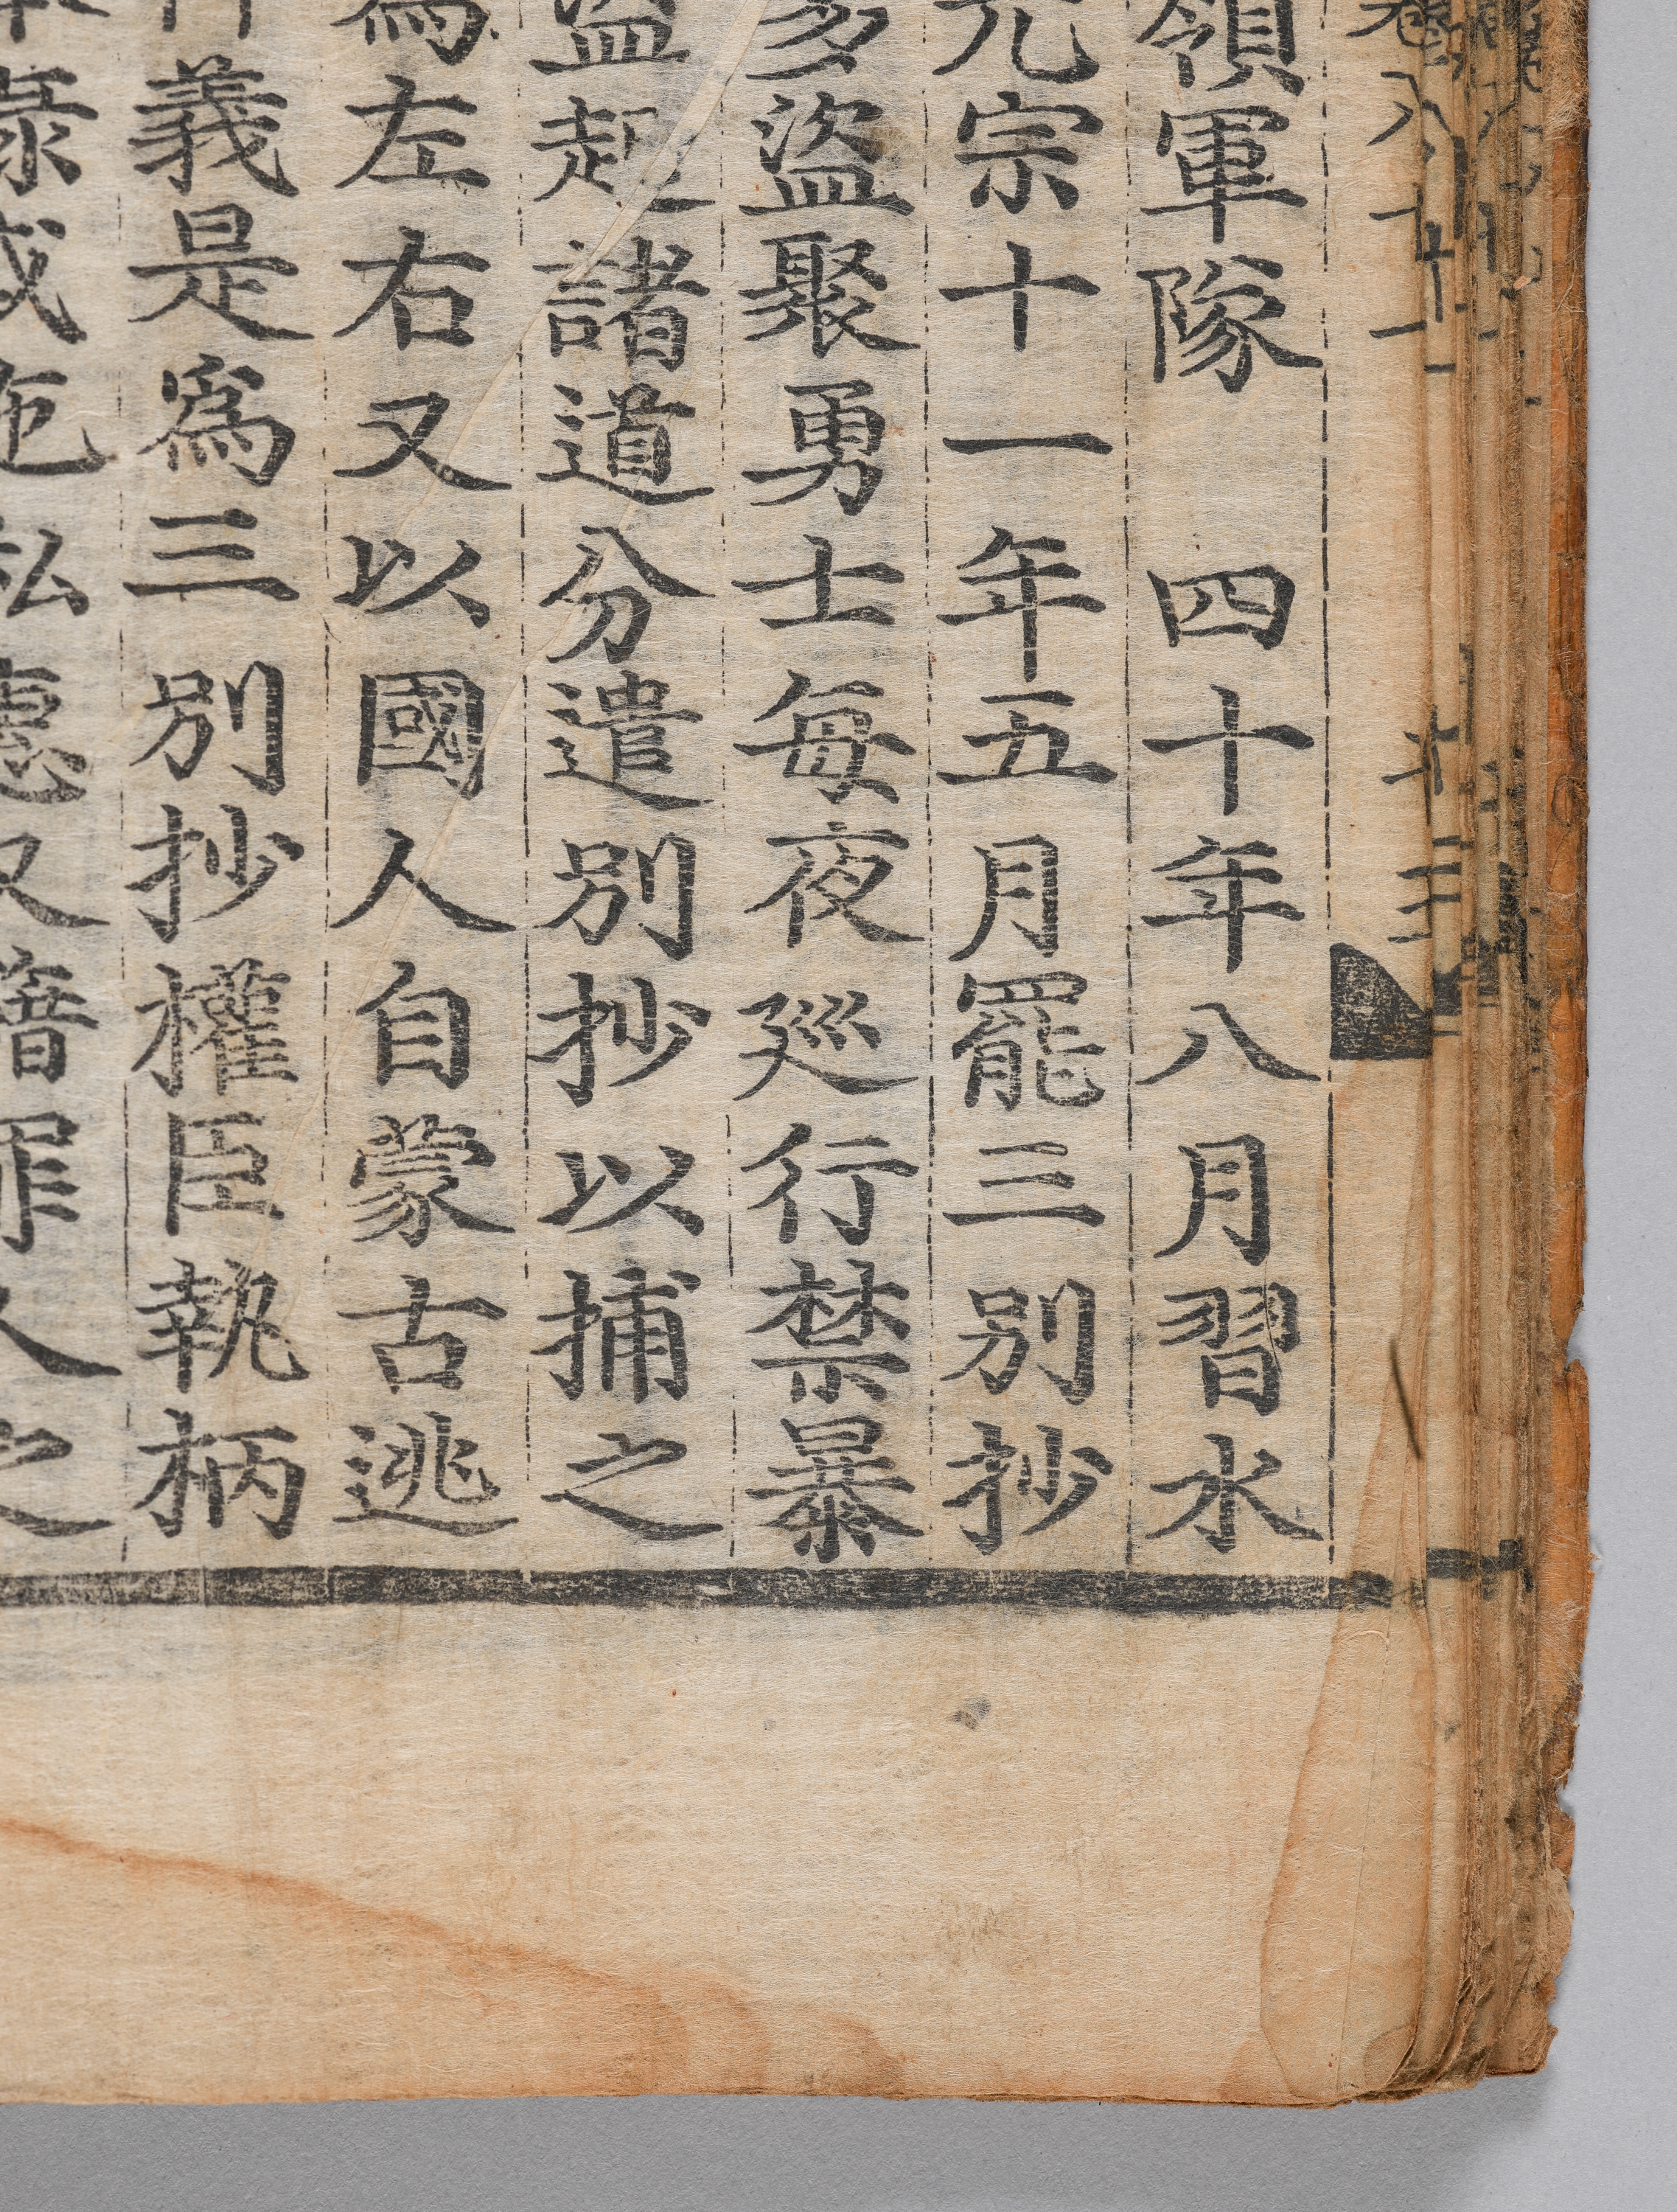 領軍隊 四十年八月習水
元宗十一年五月罷三別抄
多盜聚勇士每夜廵行禁暴
盜起諸道分遣別抄以捕之
爲左右又以國人自蒙古逃
義是爲三別抄權臣執柄
私惠又籍罪人之